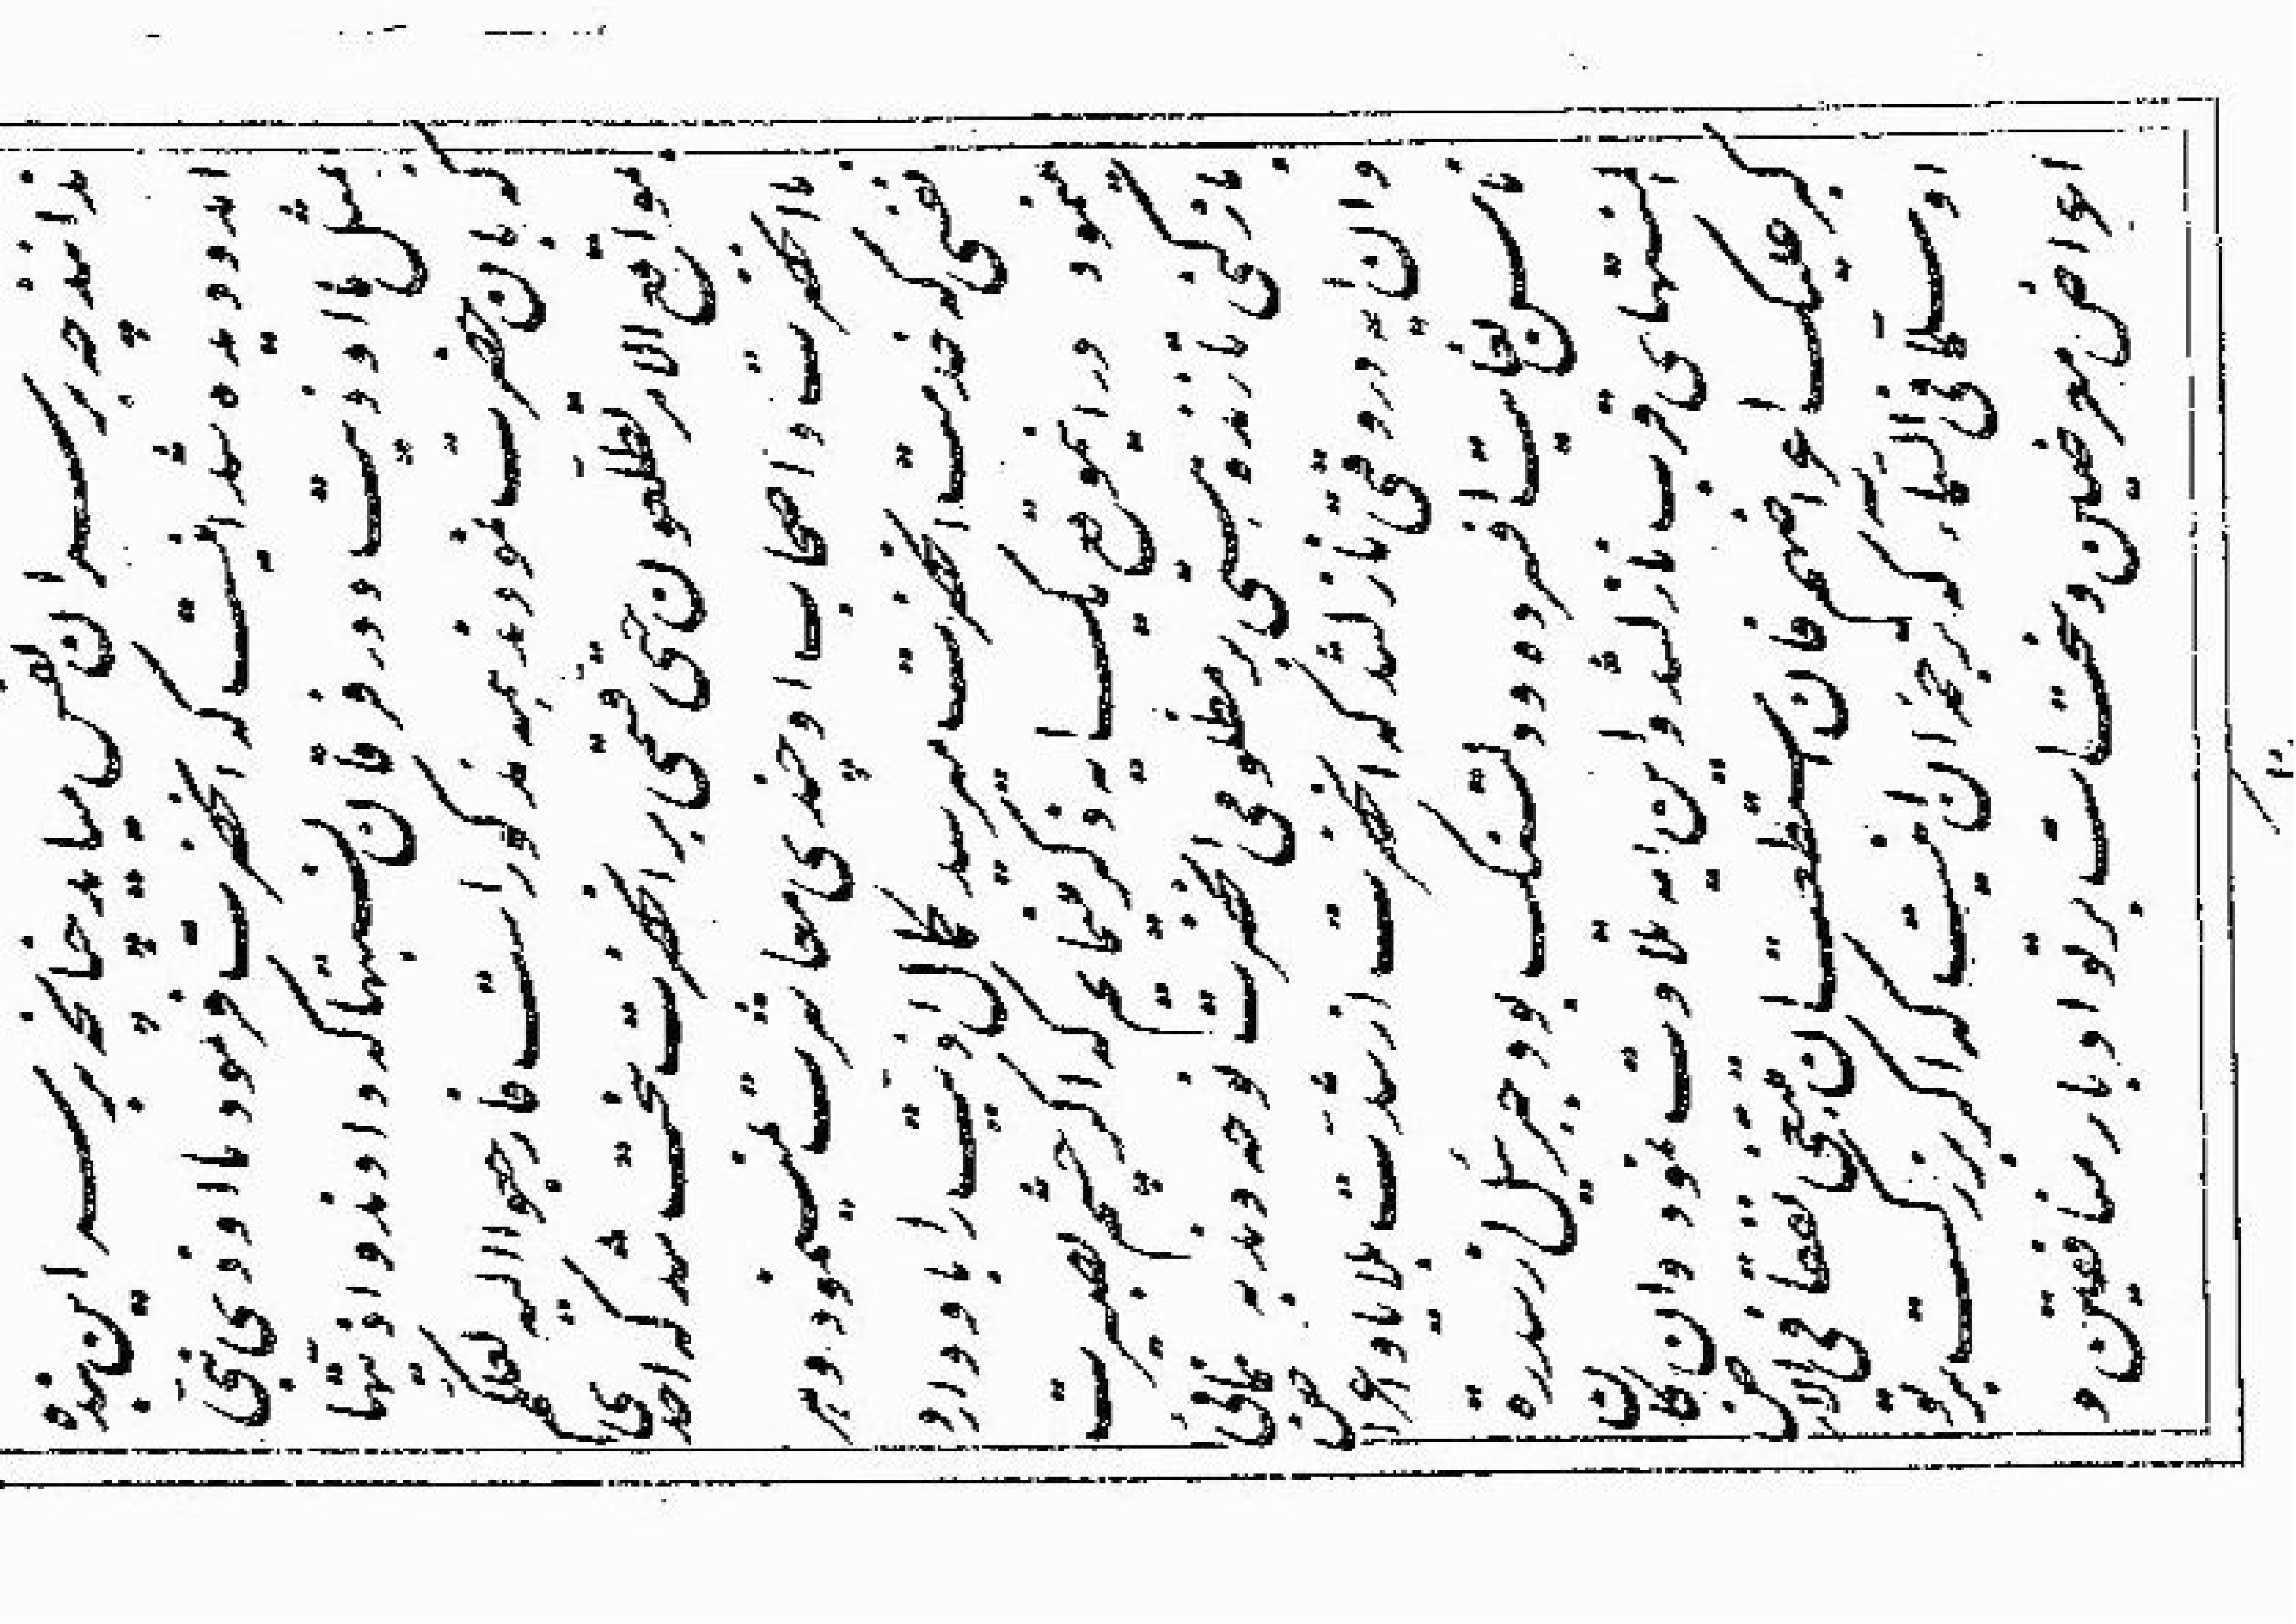 بر سر این بنده
اینست که آنحضرت فرمود ما اوذی نبی
بمثل ما اوذیت و در فرقان نسبتها که دادند و اذیتها
که بان حضرت نمودند مذکور است فارجعوا الیه لعلکم
بمواقع الامر تطلعون حتی قسمی بر انحضرت سخت شد که احدی
با انحضرت و اصحاب او چندی معاشرت نمینمود و هر
نفسی که خدمت انحضرت میرسید کمال اذیت را باو وارد
مینمود در این موقع یک ایه ذکر مینمایم که اگر چشم بصیرت
باز کنی تا زنده هستی بر مظلومی انحضرت نوحه و ندبه نمائی
و ان ایه در وقتی نازل شد که انحضرت از شدت بلایا و اعراض
ناس بغایت افسرده و دلتنگ بود جبرئیل از سدرة
المنتهای قرب نازل شد و این ایه تلاوت نمود و ان کان
کبر علیک اعراضهم فان استطعت ان تبتغی نفقا فی الارض
او سلما فی السماء که ترجمه ان اینست که اگر بزرگست بر تو
اعراض معرضین و سخت است بر تو ادبار منافقین و